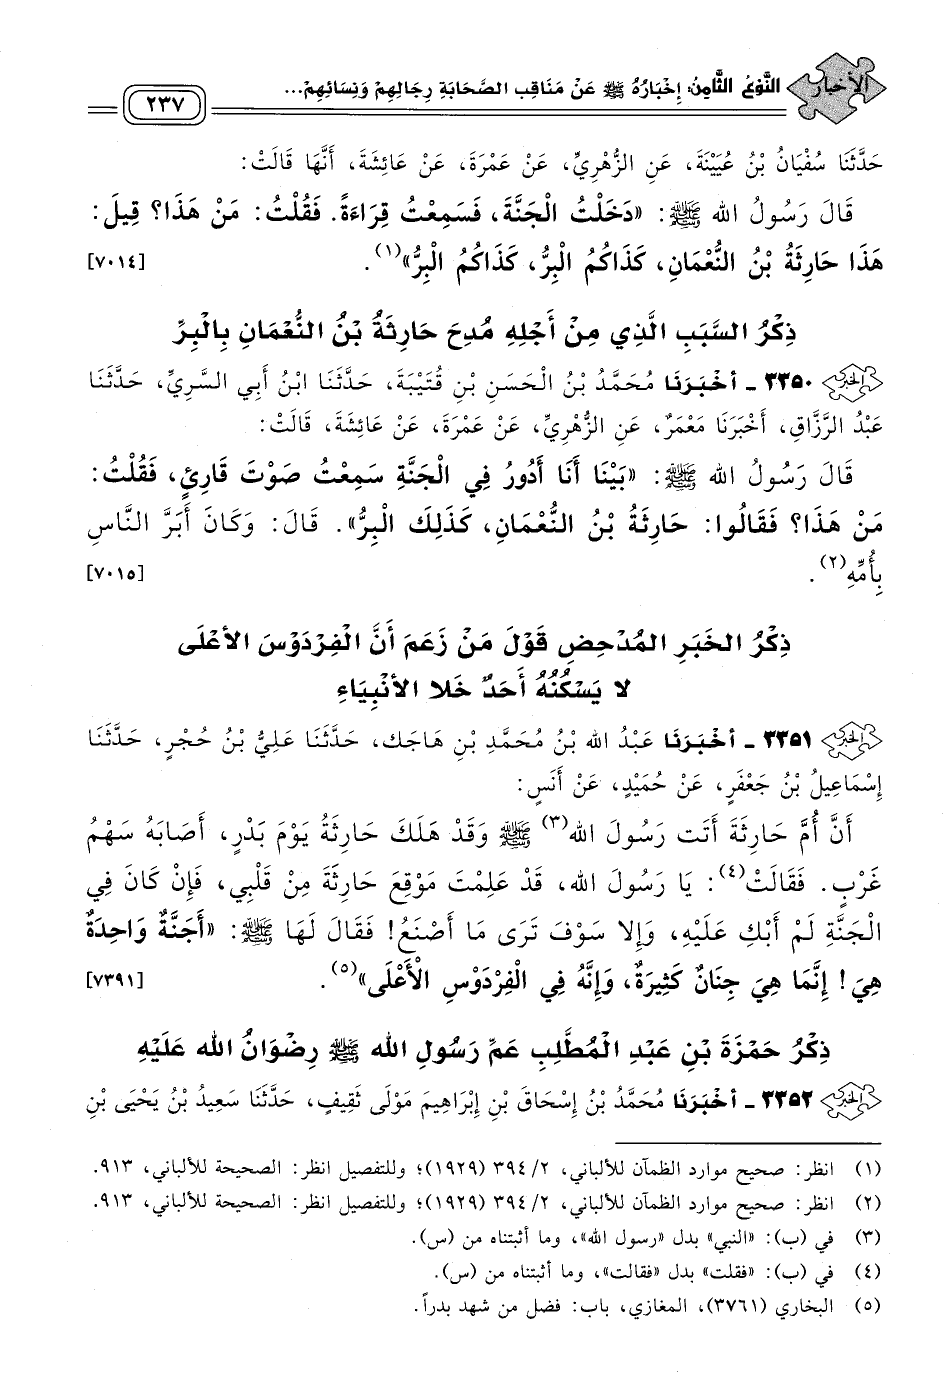 الأخبار
النَّوْعُ الثَّامِنُ: إِخْبَارُهُ ﷺ عَنْ مَنَاقِبِ الصَّحَابَةِ رِجَالِهِمْ وَنِسَائِهِمْ...
٢٣٧
حَدَّثَنَا سُفْيَانُ بْنُ عُيَيْنَةَ، عَنِ الزُّهْرِيِّ، عَنْ عَمْرَةَ، عَنْ عَائِشَةَ، أَنَّهَا قَالَتْ:
قَالَ رَسُولُ الله ﷺ: «دَخَلْتُ الْجَنَّةَ، فَسَمِعْتُ قِرَاءَةً. فَقُلْتُ: مَنْ هَذَا؟ قِيلَ:
هَذَا حَارِثَةُ بْنُ النُّعْمَانِ، كَذَاكُمُ الْبِرُّ، كَذَاكُمُ الْبِرُّ»(١). [٧٠١٤]
ذِكْرُ السَّبَبِ الَّذِي مِنْ أَجْلِهِ مُدِحَ حَارِثَةُ بْنُ النُّعْمَانِ بِالْبِرِّ
٣٣٥٠ - أَخْبَرَنَا مُحَمَّدُ بْنُ الْحَسَنِ بْنِ قُتَيْبَةَ، حَدَّثَنَا ابْنُ أَبِي السَّرِيِّ، حَدَّثَنَا
عَبْدُ الرَّزَّاقِ، أَخْبَرَنَا مَعْمَرٌ، عَنِ الزُّهْرِيِّ، عَنْ عَمْرَةَ، عَنْ عَائِشَةَ، قَالَتْ:
قَالَ رَسُولُ الله ﷺ: «بَيْنَا أَنَا أَدُورُ فِي الْجَنَّةِ سَمِعْتُ صَوْتَ قَارِئٍ، فَقُلْتُ:
مَنْ هَذَا؟ فَقَالُوا: حَارِثَةُ بْنُ النُّعْمَانِ، كَذَلِكَ الْبِرُّ». قَالَ: وَكَانَ أَبَرَّ النَّاسِ
بِأُمِّهِ(٢). [٧٠١٥]
ذِكْرُ الخَبَرِ المُدْحِضِ قَوْلَ مَنْ زَعَمَ أَنَّ الْفِرْدَوْسَ الأَعْلَى
لا يَسْكُنُهُ أَحَدٌ خَلا الأَنْبِيَاءِ
٣٣٥١ - أَخْبَرَنَا عَبْدُ الله بْنُ مُحَمَّدِ بْنِ هَاجَك، حَدَّثَنَا عَلِيُّ بْنُ حُجْرٍ، حَدَّثَنَا
إِسْمَاعِيلُ بْنُ جَعْفَرٍ، عَنْ حُمَيْدٍ، عَنْ أَنَسٍ:
أَنَّ أُمَّ حَارِثَةَ أَتَت رَسُولَ الله(٣) ﷺ وَقَدْ هَلَكَ حَارِثَةُ يَوْمَ بَدْرٍ، أَصَابَهُ سَهْمُ
غَرْبٍ. فَقَالَتْ(٤): يَا رَسُولَ الله، قَدْ عَلِمْتَ مَوْقِعَ حَارِثَةَ مِنْ قَلْبِي، فَإِنْ كَانَ فِي
الْجَنَّةِ لَمْ أَبْكِ عَلَيْهِ، وَإِلا سَوْفَ تَرَى مَا أَصْنَعُ! فَقَالَ لَهَا ﷺ: «أَجَنَّةٌ وَاحِدَةٌ
هِيَ! إِنَّمَا هِيَ جِنَانٌ كَثِيرَةٌ، وَإِنَّهُ فِي الْفِرْدَوْسِ الْأَعْلَى»(٥). [٧٣٩١]
ذِكْرُ حَمْزَةَ بْنِ عَبْدِ الْمُطَّلِبِ عَمِّ رَسُولِ الله ﷺ رِضْوَانُ الله عَلَيْهِ
٣٣٥٢ - أَخْبَرَنَا مُحَمَّدُ بْنُ إِسْحَاقَ بْنِ إِبْرَاهِيمَ مَوْلَى ثَقِيفٍ، حَدَّثَنَا سَعِيدُ بْنُ يَحْيَى بْنِ
(١) انظر: صحيح موارد الظمآن للألباني، ٢/ ٣٩٤ (١٩٢٩)؛ وللتفصيل انظر: الصحيحة للألباني، ٩١٣.
(٢) انظر: صحيح موارد الظمآن للألباني، ٢/ ٣٩٤ (١٩٢٩)؛ وللتفصيل انظر: الصحيحة للألباني، ٩١٣.
(٣) في (ب): «النبي» بدل «رسول الله»، وما أثبتناه من (س).
(٤) في (ب): «فقلت» بدل «فقالت»، وما أثبتناه من (س).
(٥) البخاري (٣٧٦١)، المغازي، باب: فضل من شهد بدراً.